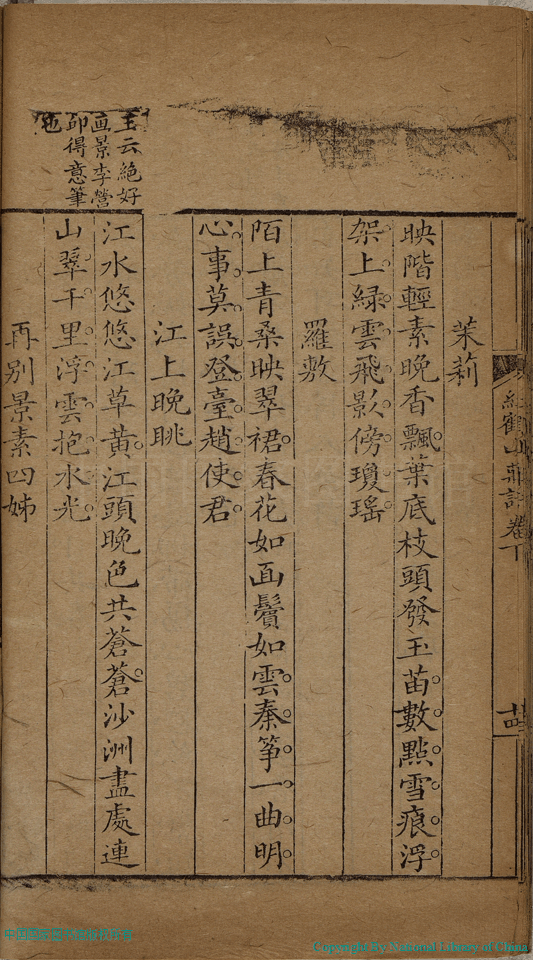 茉莉
映階輕素晚香飄葉底枝頭發玉苗數點雪痕浮
架上綠雲飛影傍瓊瑤
羅敷
陌上青桑映翠裙春花如面鬢如雲秦筝一曲明
心事莫誤登臺趙使君
江上晚眺
江水悠悠江草黃江頭晚色共蒼蒼沙洲盡處連
山翠千里浮雲抱水光
再別景素四姊
玉云絕好
畫景李營
邱得意筆
也
鶴山莊詩卷下
十四
Copyright By National Library of China